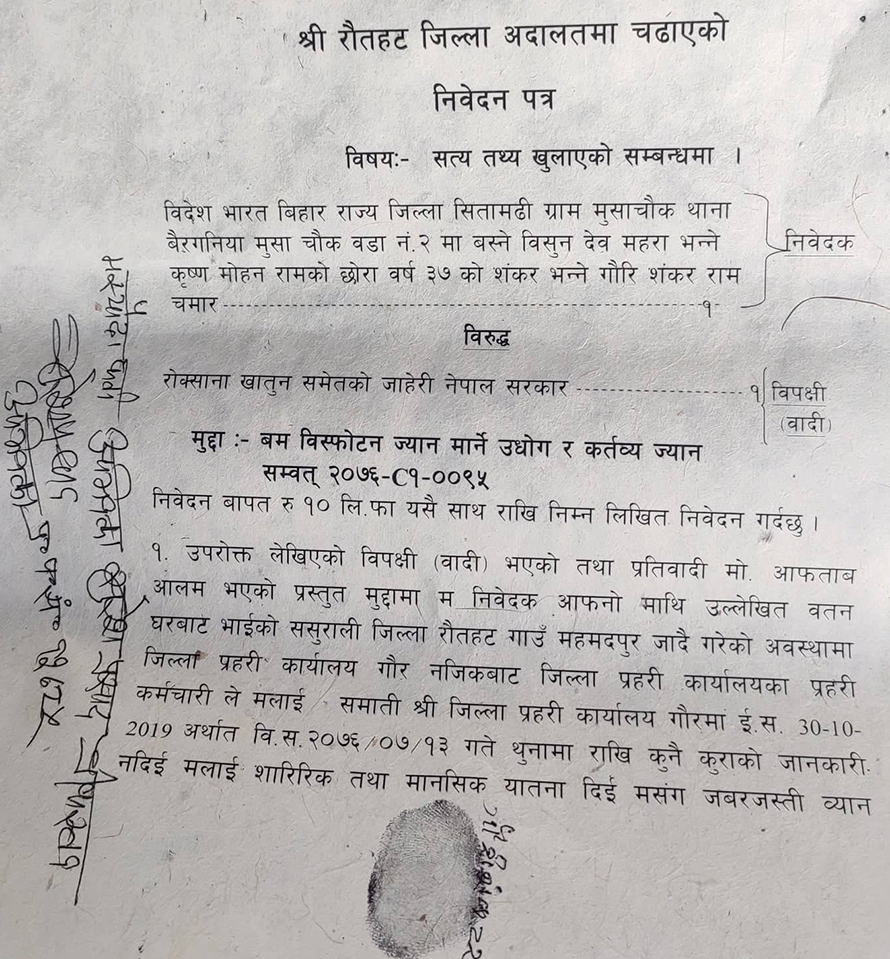 श्री रौतहट जिल्ला अदालतमा चढाएको
निवेदन पत्र
विषयः- सत्य तथ्य खुलाएको सम्बन्धमा ।
विदेश भारत बिहार राज्य जिल्ला सितामढी ग्राम मुसाचौक थाना
बैरगनिया मुसा चौक वडा नं.२ मा बस्ने विसुन देव महरा भन्ने
कृष्ण मोहन रामको छोरा वर्ष ३७ को शंकर भन्ने गौरि शंकर राम
चमार ------------------------------------------------ १
निवेदक
विरुद्ध
रोक्साना खातुन समेतको जाहेरी नेपाल सरकार ---------------- १
विपक्षी
(वादी)
मुद्दा :- बम विस्फोटन ज्यान मार्ने उधोग र कर्तव्य ज्यान
सम्वत् २०७६-C१-००९५
निवेदन बापत रु १० लि.फा यसै साथ राखि निम्न लिखित निवेदन गर्दछु ।
१. उपरोक्त लेखिएको विपक्षी (वादी) भएको तथा प्रतिवादी मो. आफताब
आलम भएको प्रस्तुत मुद्दामा म निवेदक आफनो माथि उल्लेखित वतन
घरबाट भाईको ससुराली जिल्ला रौतहट गाउँ महमदपुर जादै गरेको अवस्थामा
जिल्ला प्रहरी कार्यालय गौर नजिकबाट जिल्ला प्रहरी कार्यालयका प्रहरी
कर्मचारी ले मलाई समाती श्री जिल्ला प्रहरी कार्यालय गौरमा ई.स. 30-10-
2019 अर्थात वि.स.२०७६/०७/१३ गते थुनामा राखि कुनै कुराको जानकारी
नदिई मलाई शारिरिक तथा मानसिक यातना दिई मसंग जबरजस्ती व्यान